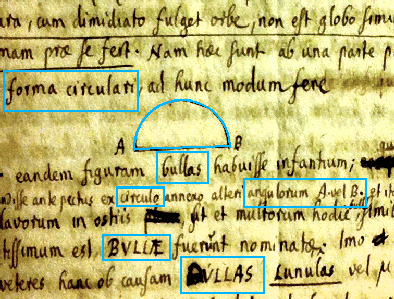 ura, cum dimidiato fulget orbe, non est globo simi
nam præ se fert. Nam hæc sunt ab una parte p
forma circulari, ad hunc modum fere
A B
eandem figuram bullas habuisse infantium,
ante pectus ex circulo annexo alteri angulorum A vel B. et it
lavorum in ostiis ut et multorum hodie,
tissimum est BULLÆ fuerunt nominatæ. Imo
veteres hanc ob causam BULLAS Lunulas vel